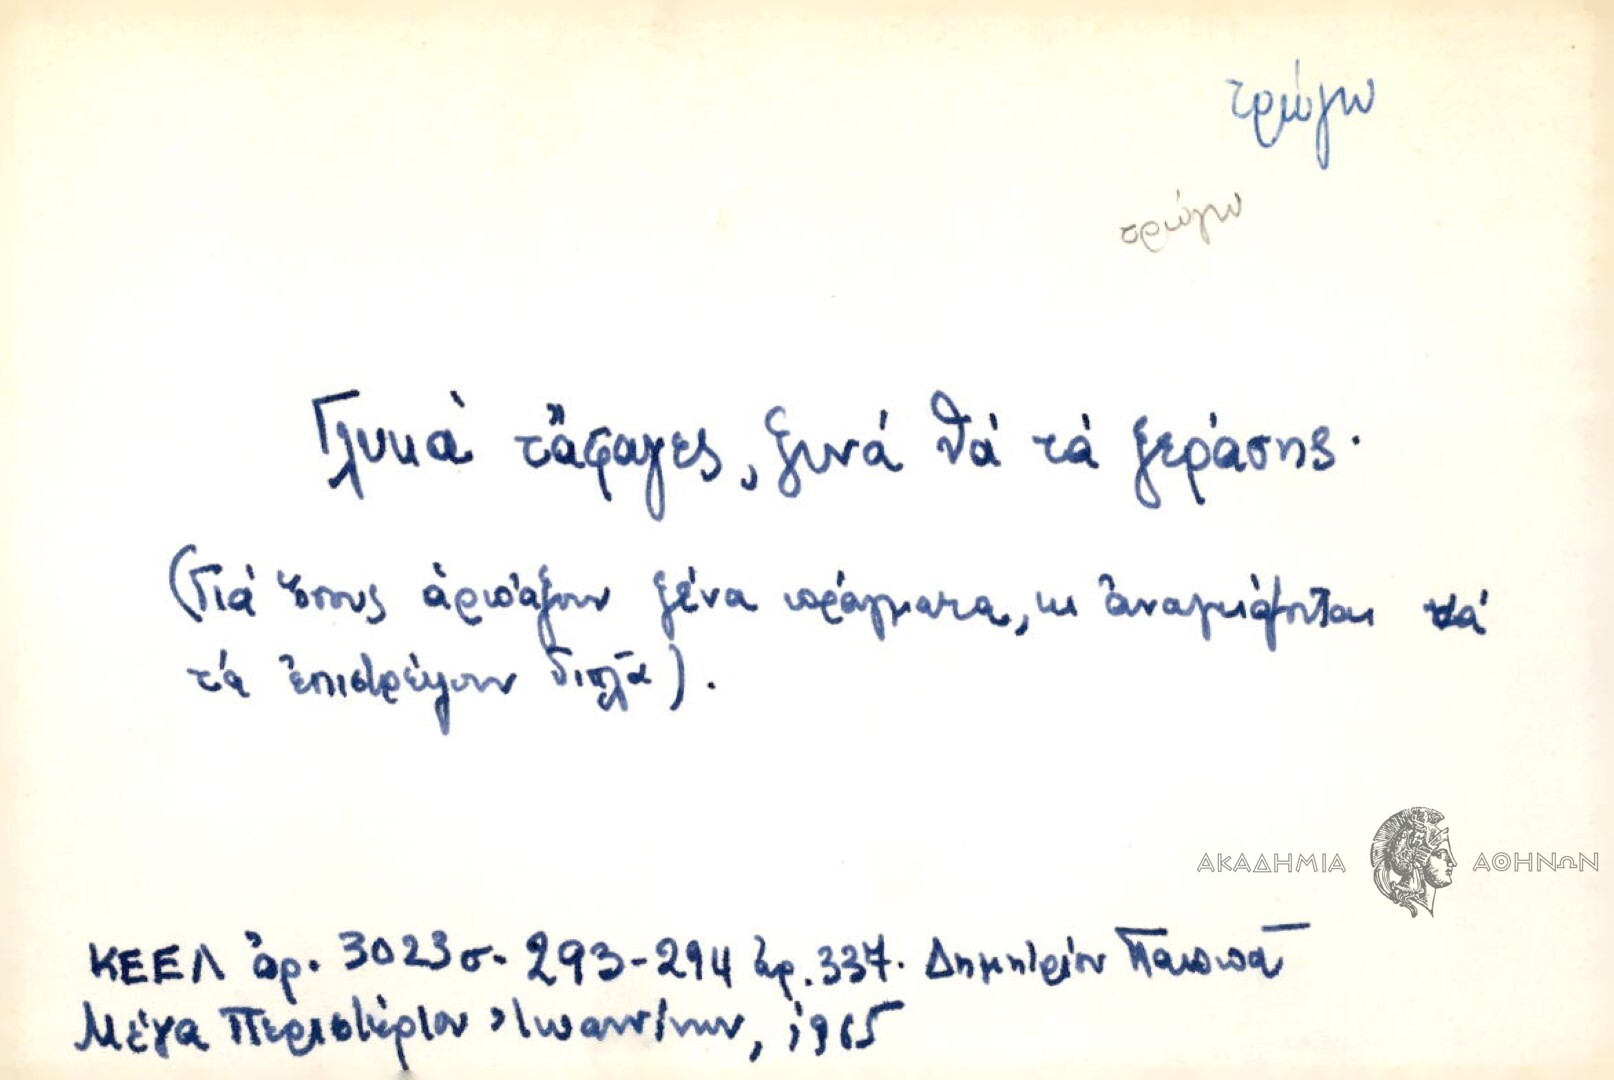 τρώγω
τρώγω
Γλυκὰ τἄφαγες, ξυνά θά τά ξεράσης.
(Γιά ὅσους ἁρπάζουν ξένα πράγματα, κι ἀναγκάζονται νά
τά ἐπιστρέψουν διπλᾶ).
ΑΚΑΔΗΜΙΑ ΑΘΗΝΩΝ
ΚΕΕΛ ἀρ. 3023 σ. 293-294 ἀρ. 337. Δημητρίου Παππᾶ
Μέγα Περιστέριον Ἰωαννίνων, 1965